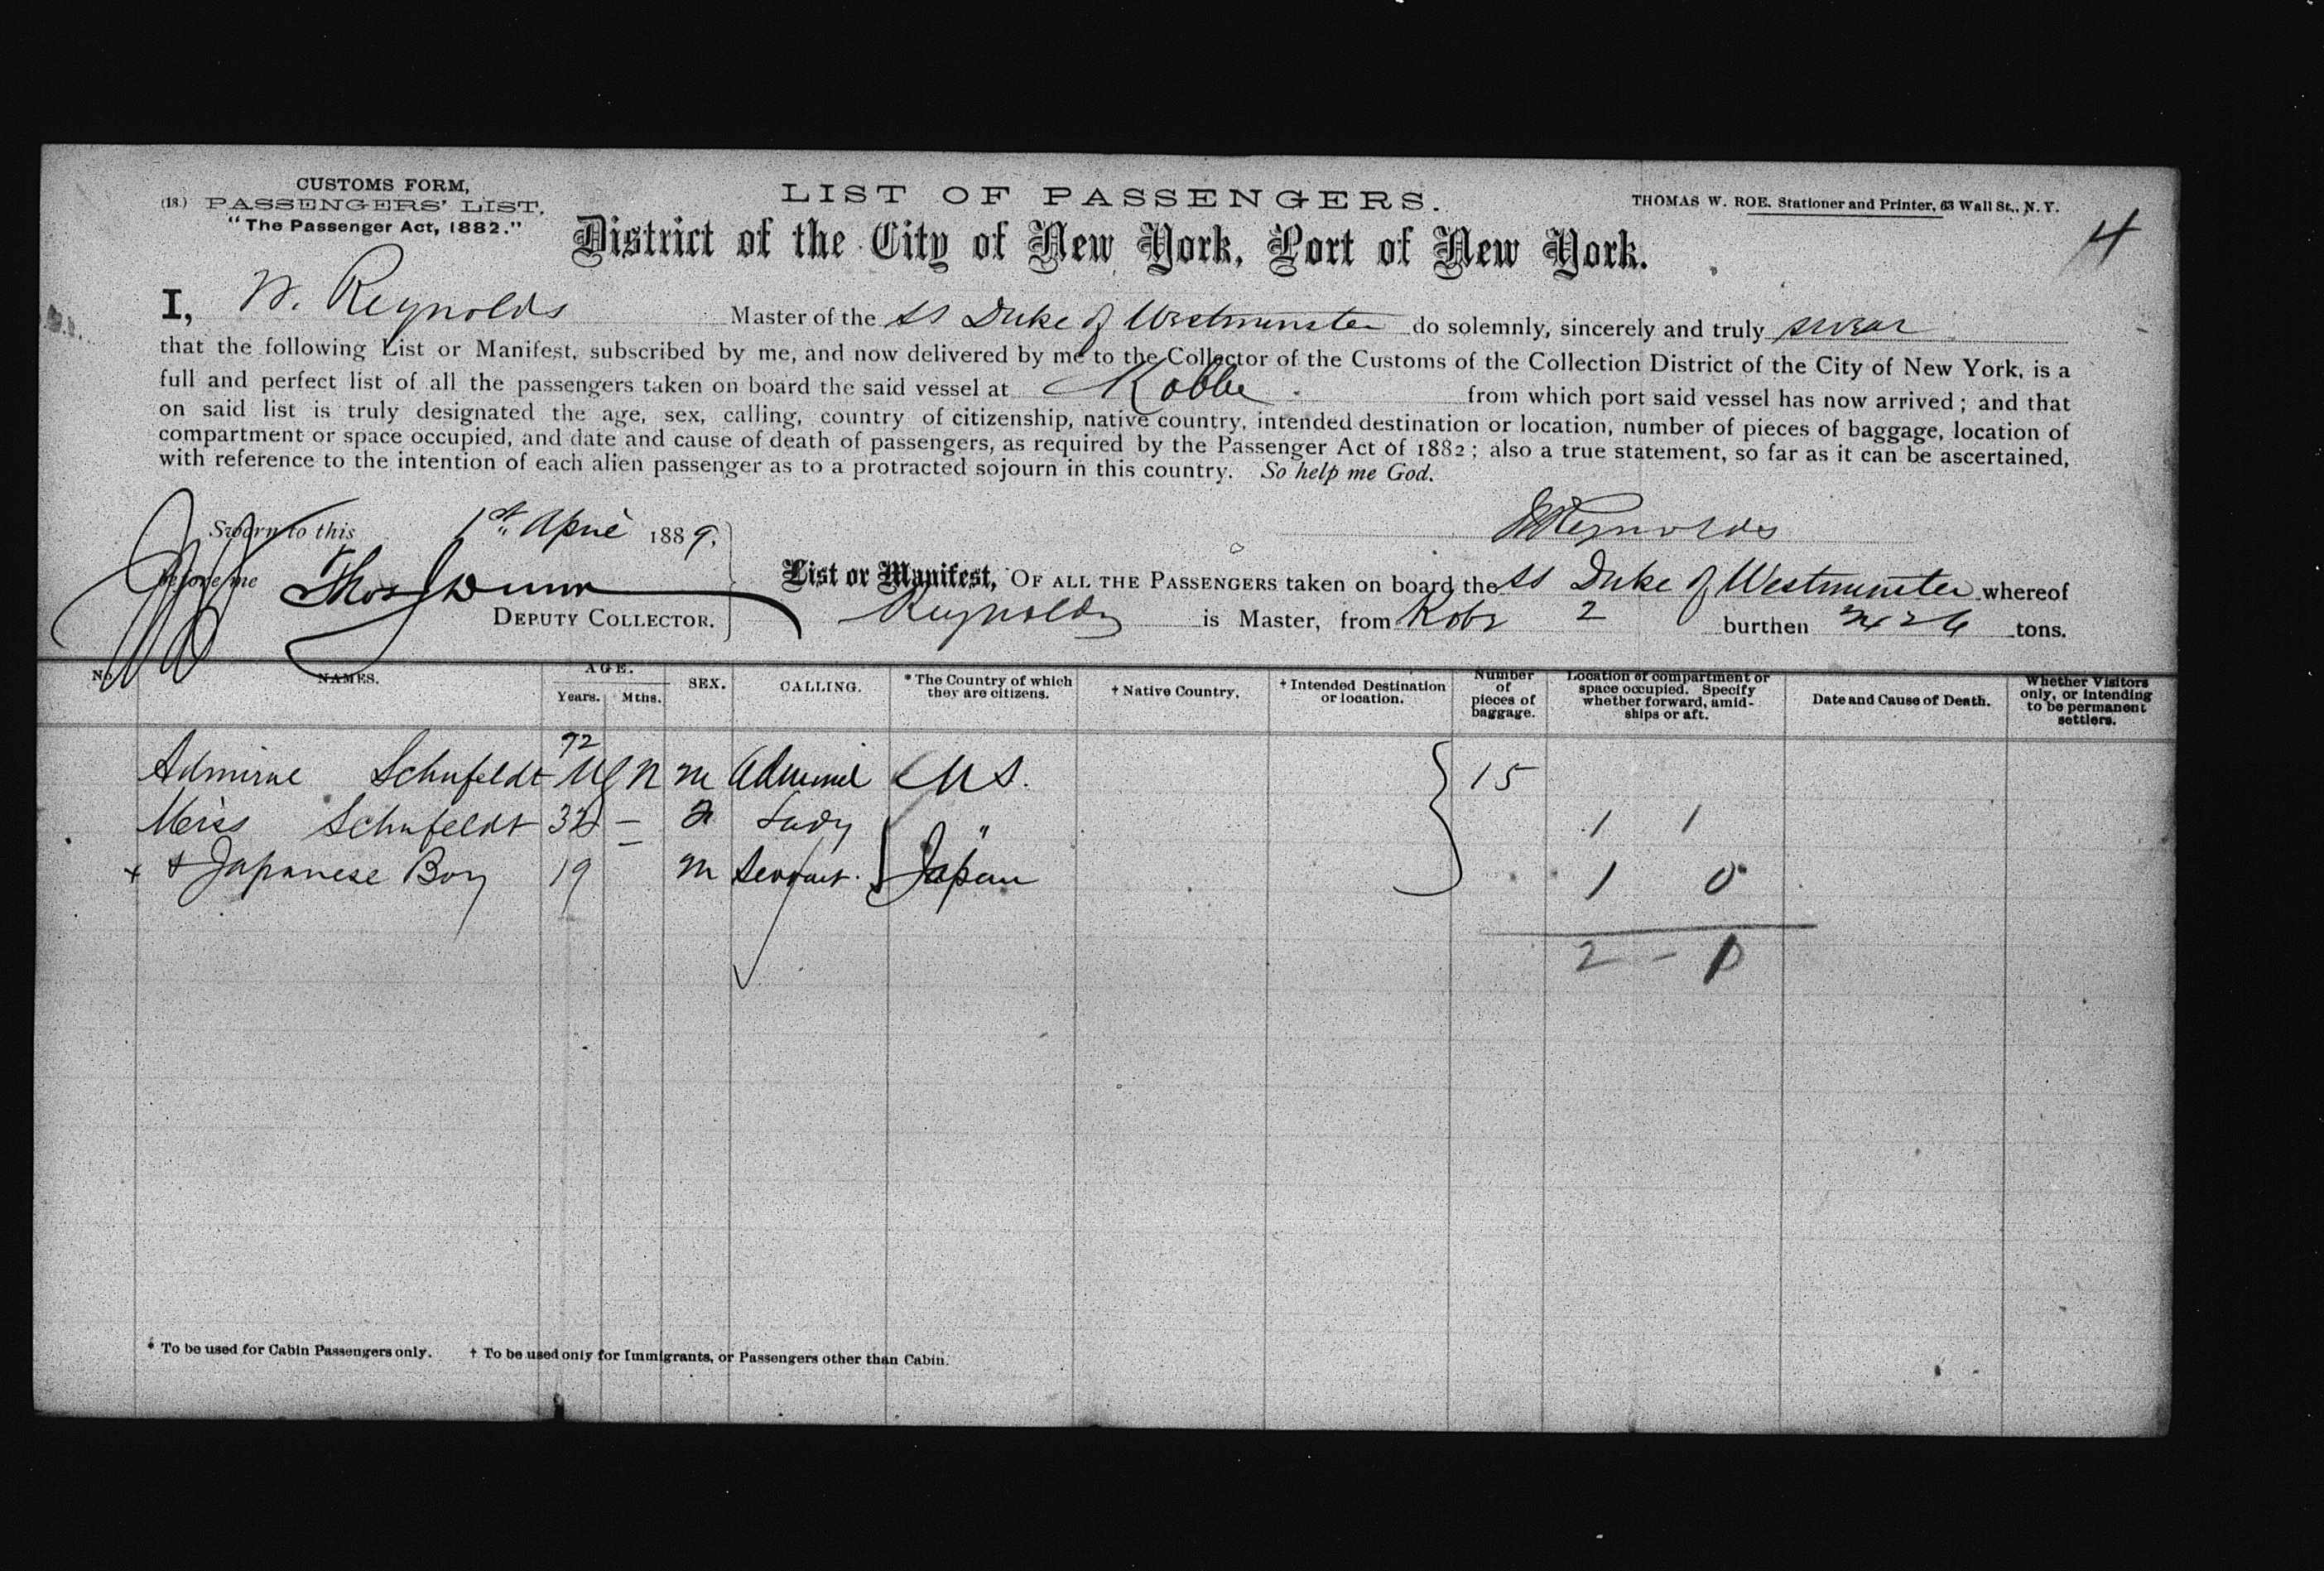 CUSTOMS FORM,
(18.) PASSENGERS' LIST.
"The Passenger Act, 1882."
LIST OF PASSENGERS.
THOMAS W. ROE. Stationer and Printer, 63 Wall St., N. Y.
4
District of the City of New York, Port of New York.
I, W. Reynolds Master of the SS Duke of Westminster do solemnly, sincerely and truly swear
that the following List or Manifest, subscribed by me, and now delivered by me to the Collector of the Customs of the Collection District of the City of New York, is a
full and perfect list of all the passengers taken on board the said vessel at Kobbe from which port said vessel has now arrived; and that
on said list is truly designated the age, sex, calling, country of citizenship, native country, intended destination or location, number of pieces of baggage, location of
compartment or space occupied, and date and cause of death of passengers, as required by the Passenger Act of 1882; also a true statement, so far as it can be ascertained,
with reference to the intention of each alien passenger as to a protracted sojourn in this country. So help me God.
Sworn to this 1st April 1889.
W Reynolds
before me Thos Dunn
DEPUTY COLLECTOR.
List or Manifest, OF ALL THE PASSENGERS taken on board the SS Duke of Westminster whereof
Reynolds is Master, from Kobe 2 burthen 2426 tons.
No. NAMES. AGE. Years. Mths. SEX. CALLING. * The Country of which they are citizens. † Native Country. † Intended Destination or location. Number of pieces of baggage. Location of compartment or space occupied. Specify whether forward, amidships or aft. Date and Cause of Death. Whether Visitors only, or intending to be permanent settlers.
72
Admiral Schufeldt USN M Admiral U.S. 15
Miss Schufeldt 32 — F Lady " 1 1
+ & Japanese Boy 19 M Servant. Japan 1 0
2 - 1
* To be used for Cabin Passengers only. † To be used only for Immigrants, or Passengers other than Cabin.